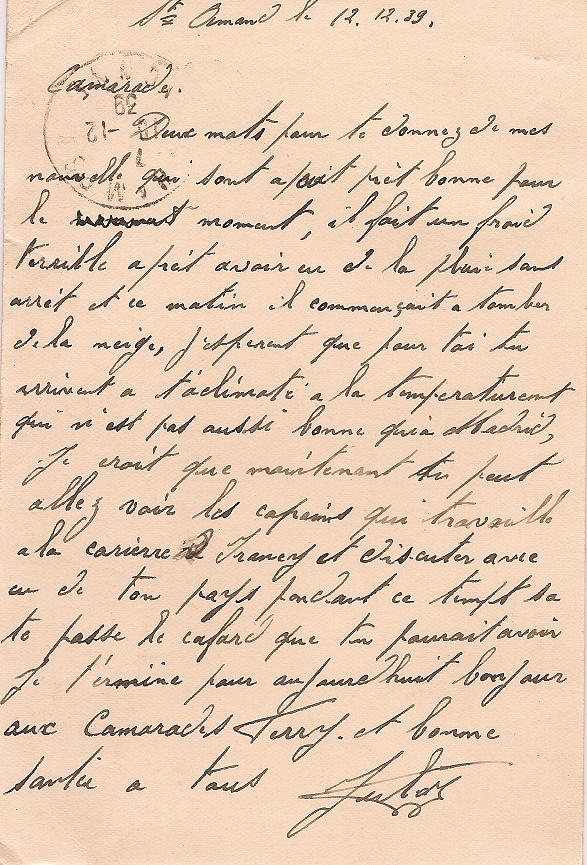 St Amand le 12.12.39.
Camarade.
Deux mots pour te donnez de mes
nouvelle qui sont a peut prêt bonne pour
le moment, il fait un froid
terrible a prêt avoir eu de la pluie sans
arrêt et ce matin il commençait a tomber
de la neige, j'esperent que pour toi tu
arrivent a t'aclimaté a la temperaturent
qui n'est pas aussi bonne qu'a Madrid,
Je croit que maintenant tu peut
allez voir les copains qui travaille
a la carierre a Trancy et discuter avec
eu de ton pays pendant ce tempt sa
te passe le cafard que tu pourait avoir
Je t'érmine pour aujourd'huit bonjour
aux Camarades Ferry. et bonne
santée a tous
12 39